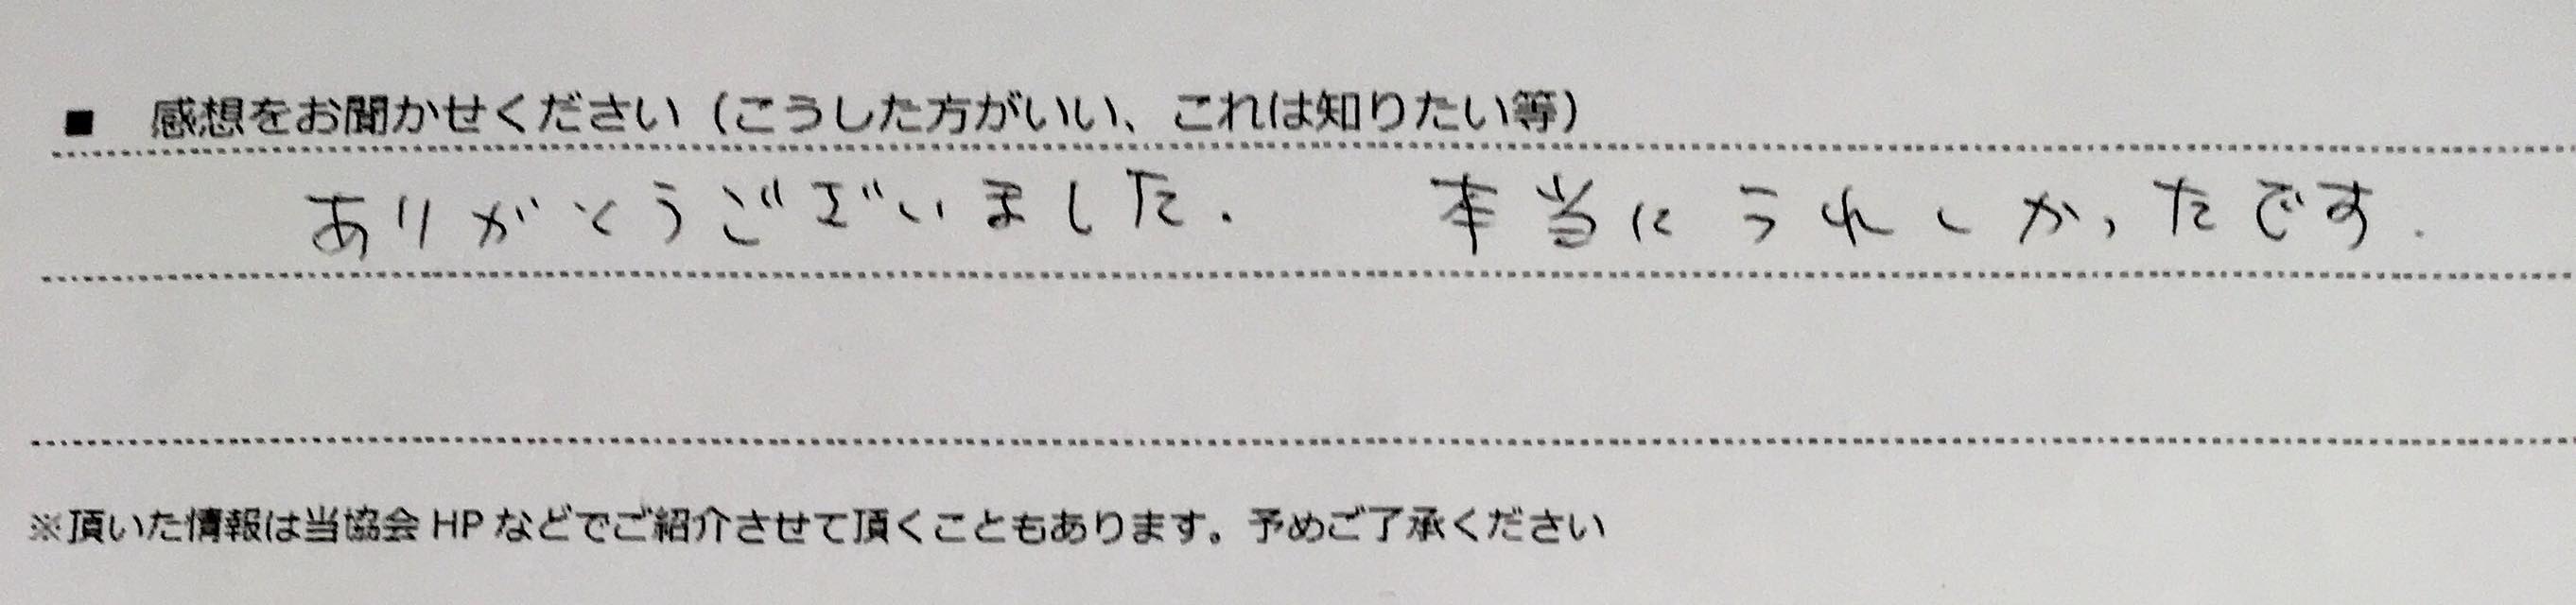 ■ 感想をお聞かせください（こうした方がいい、これは知りたい等）
ありがとうございました. 本当にうれしかったです.
※頂いた情報は当協会 HP などでご紹介させて頂くこともあります。予めご了承ください